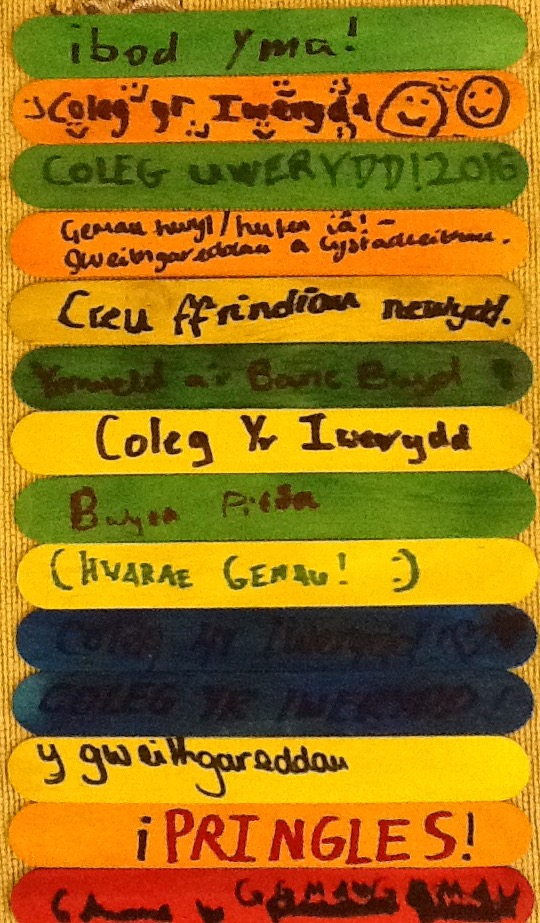 ibod yma!
Coleg yr Iwerydd
COLEG IWERYDD! 2016
Gemau hwyl / hufen iâ! -
gweithgareddau a cystadleithau.
Creu ffrindiau newydd.
Ymweld a'r Banc Bwyd !
Coleg Yr Iwerydd
Bwyta Pitsa
(HWARAE GEMAU! :)
Coleg Yr Iwerydd!
COLEG YR IWERYDD!
y gweithgareddau
¡PRINGLES!